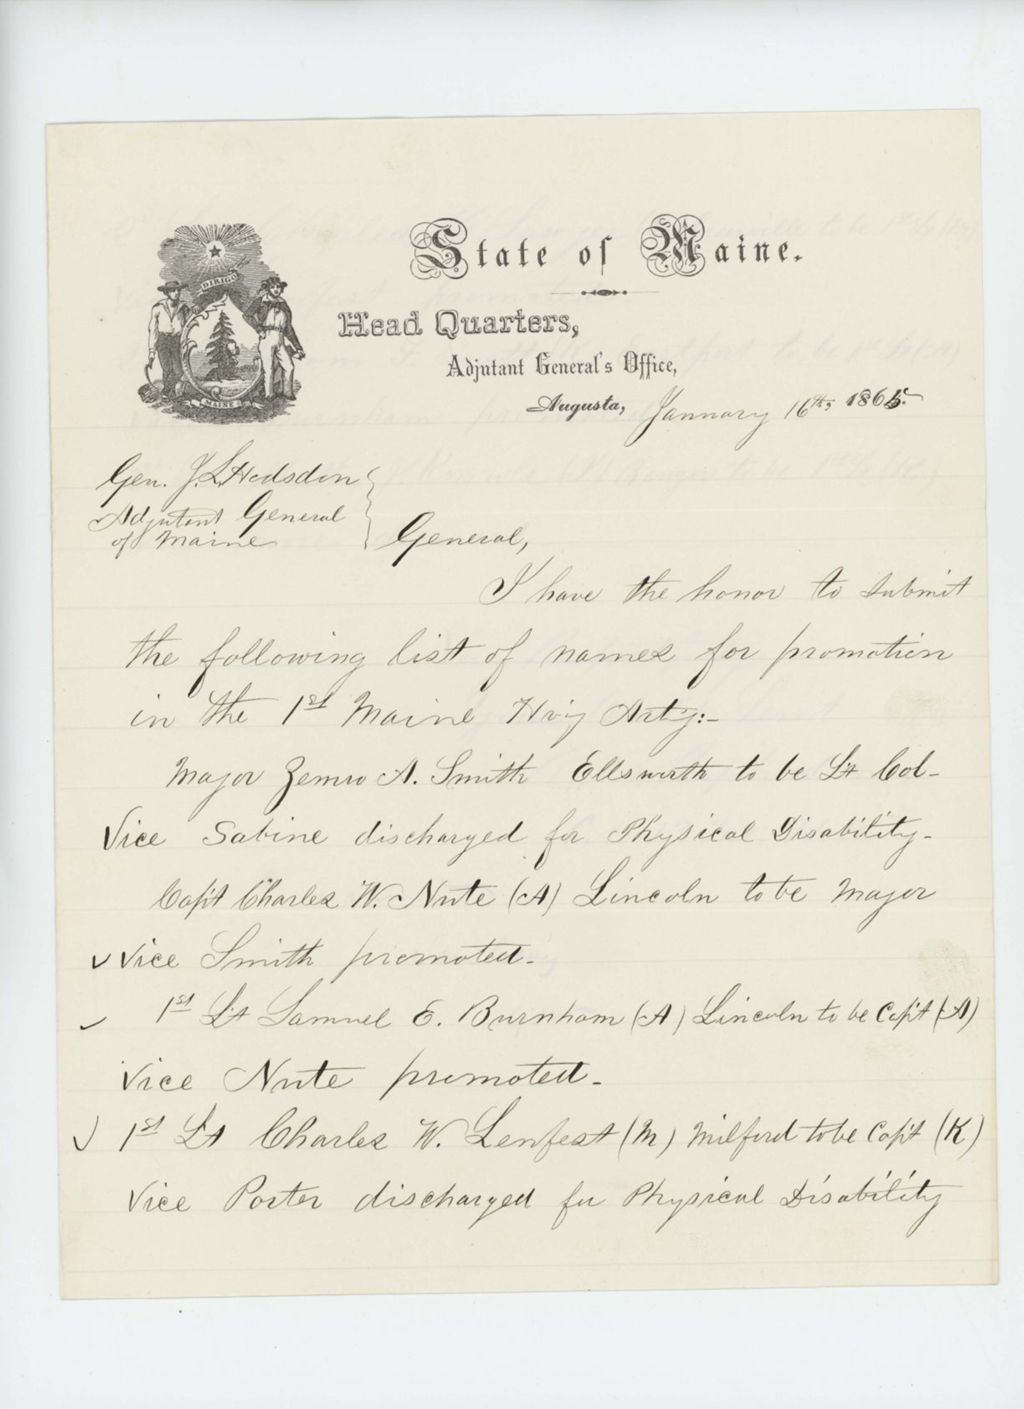 DIRIGO
MAINE
State of Maine.
Head Quarters,
Adjutant General's Office,
Augusta, January 16th, 1865.
Gen. J. L. Hodsdon
Adjutant General
of Maine
General,
I have the honor to submit
the following list of names for promotion
in the 1st Maine H'vy Art'y:-
Major Zemro A. Smith Ellsworth to be Lt Col-
Vice Sabine discharged for Physical Disability-
Cap't Charles W. Nute (A) Lincoln to be Major
✓ Vice Smith promoted-
✓ 1st Lt Samuel E. Burnham (A) Lincoln to be Cap't (A)
Vice Nute promoted-
✓ 1st Lt Charles W. Lenfest (M) Milford to be Cap't (K)
Vice Porter discharged for Physical Disability